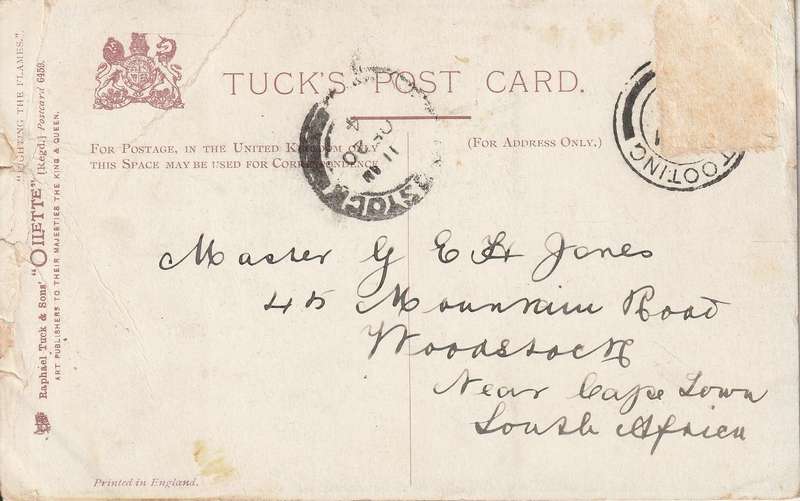 TUCK'S POST CARD.
FOR POSTAGE, IN THE UNITED KINGDOM ONLY
THIS SPACE MAY BE USED FOR CORRESPONDENCE
(FOR ADDRESS ONLY.)
TOOTING
Master G E H Jones
45 Mountain Road
Woodstock
Near Cape Town
South Africa
"FIGHTING THE FLAMES."
Raphael Tuck & Sons' "OILETTE" [Regd.] Postcard 6459.
ART PUBLISHERS TO THEIR MAJESTIES THE KING & QUEEN.
Printed in England.